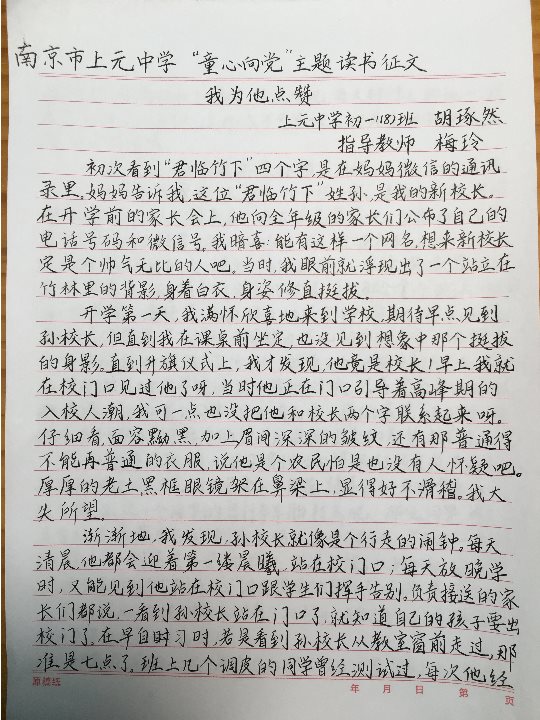 南京市上元中学 “童心向党”主题读书征文
我为他点赞
上元中学初一(18)班 胡琢然
指导教师 梅玲
初次看到“君临竹下”四个字,是在妈妈微信的通讯
录里。妈妈告诉我,这位“君临竹下”姓孙,是我的新校长。
在开学前的家长会上,他向全年级的家长们公布了自己的
电话号码和微信号。我暗喜:能有这样一个网名,想来新校长
定是个帅气无比的人吧。当时,我眼前就浮现出了一个站立在
竹林里的背影,身着白衣,身姿修直挺拔。
开学第一天,我满怀欣喜地来到学校,期待早点见到
孙校长,但直到我在课桌前坐定,也没见到想象中那个挺拔
的身影。直到升旗仪式上,我才发现,他竟是校长!早上我就
在校门口见过他了呀,当时他正在门口引导着高峰期的
入校人潮,我可一点也没把他和校长两个字联系起来呀。
仔细看,面容黝黑,加上眉间深深的皱纹,还有那普通得
不能再普通的衣服,说他是个农民怕是也没有人怀疑吧。
厚厚的老土黑框眼镜架在鼻梁上,显得好不滑稽。我大
失所望。
渐渐地,我发现,孙校长就像是个行走的闹钟。每天
清晨,他都会迎着第一缕晨曦,站在校门口;每天放晚学
时,又能见到他站在校门口跟学生们挥手告别。负责接送的家
长们都说,一看到孙校长站在门口了,就知道自己的孩子要出
校门了。在早自习时,若是看到孙校长从教室窗前走过,那
准是七点了。班上几个调皮的同学曾经测试过,每次他经
原稿纸 年 月 日 第 页